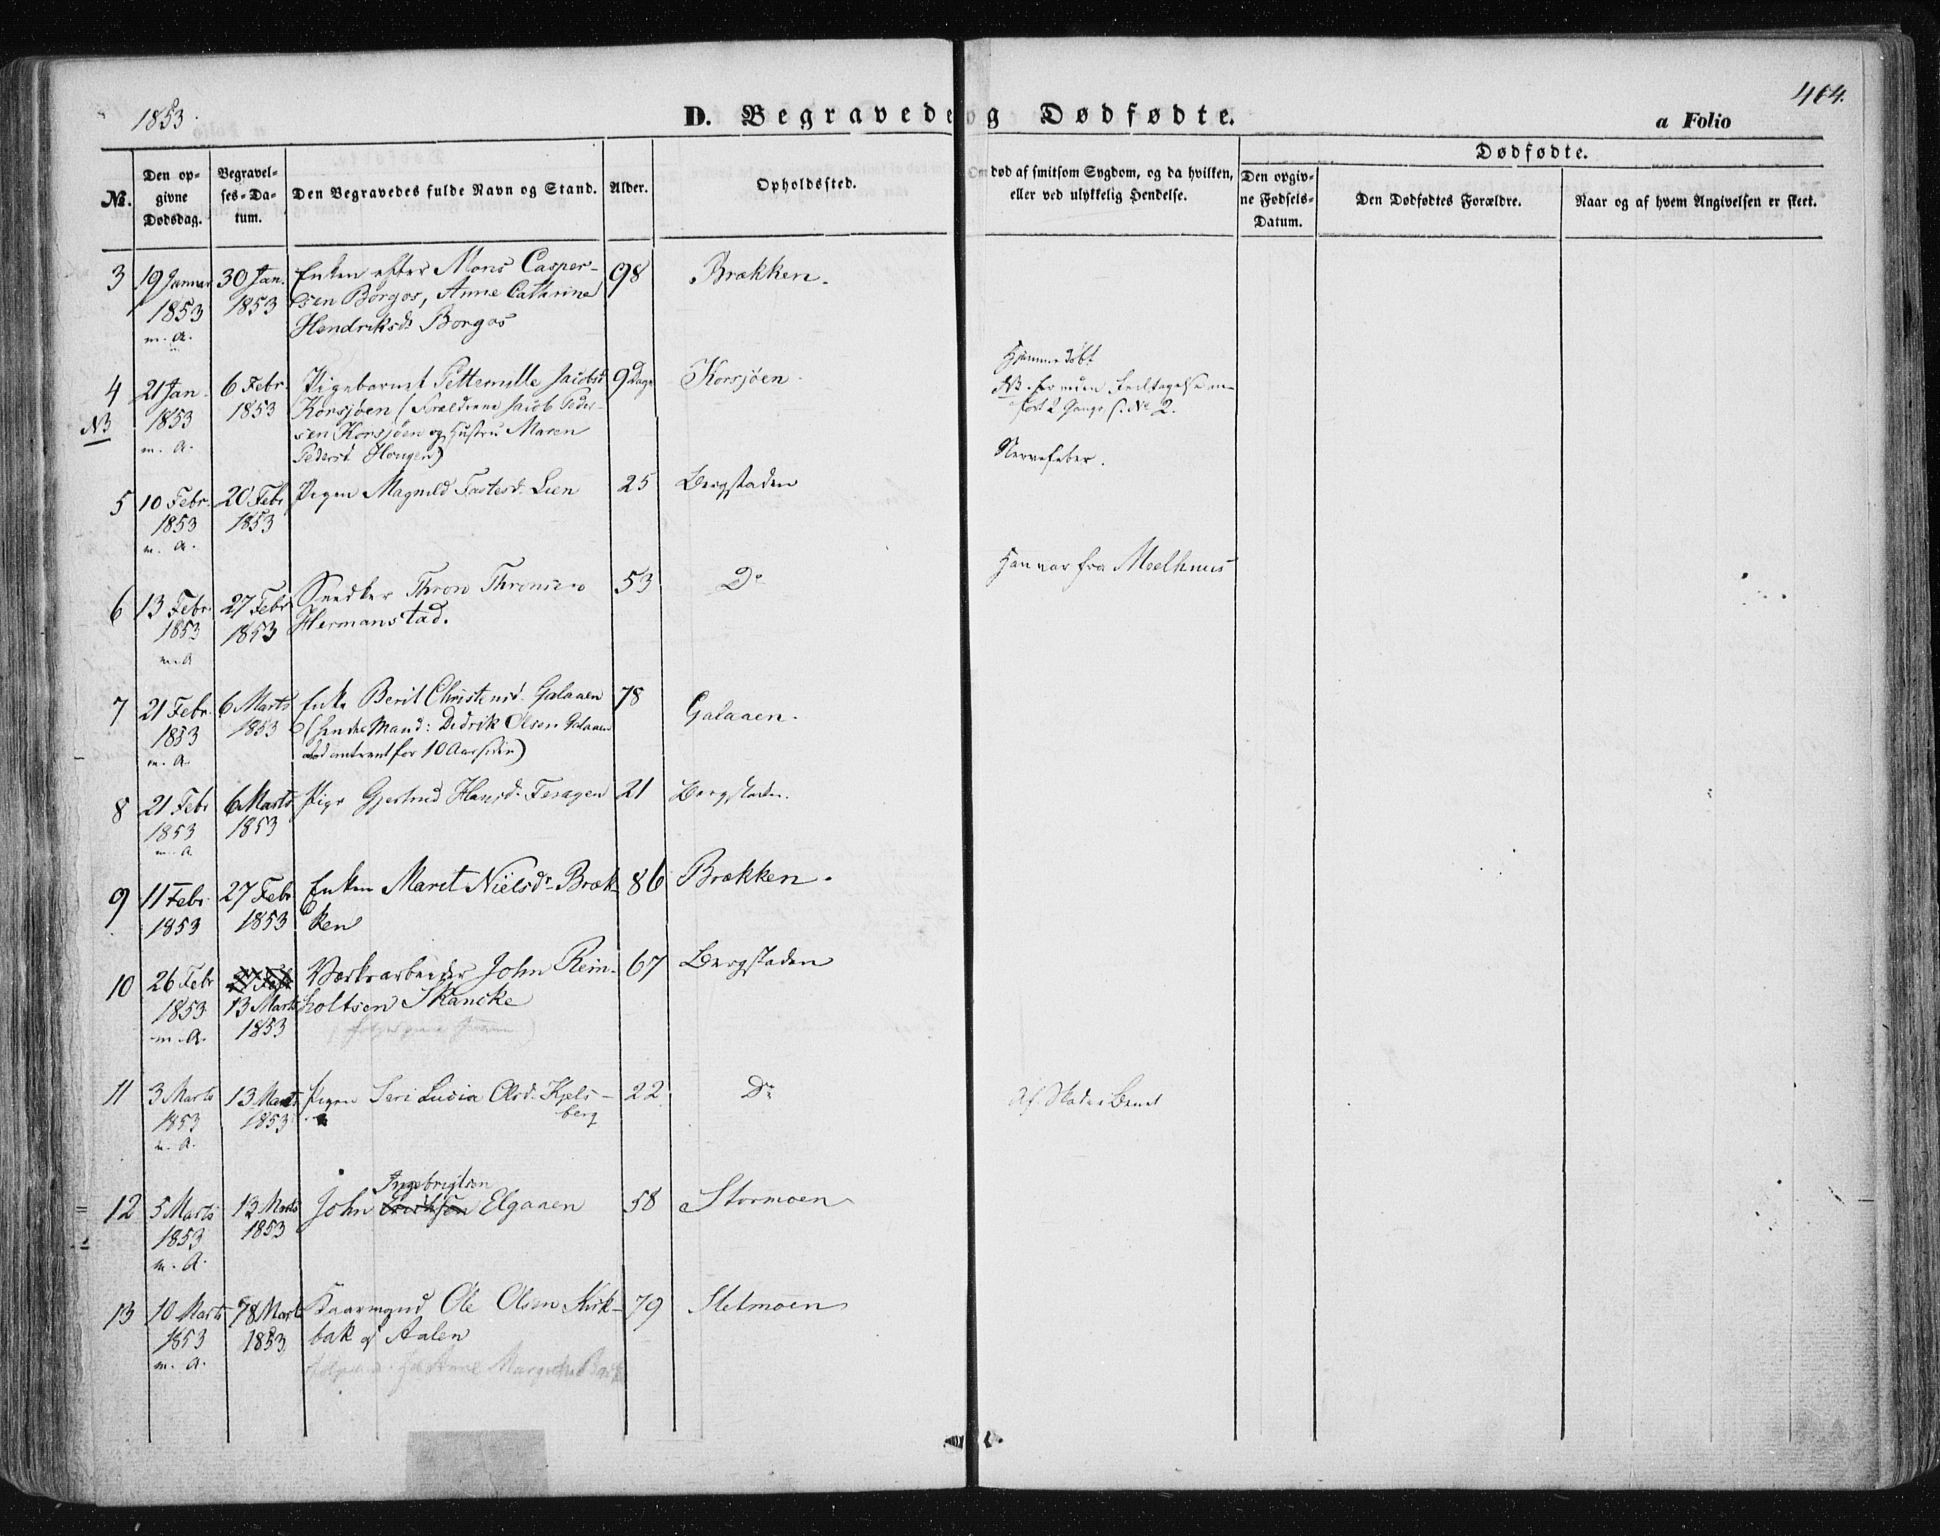 1853.
D. Begravede og Dødfødte.
404.
a Folio
No.
Den opgivne Dødsdag.
Begravelses-Datum.
Den Begravedes fulde Navn og Stand.
Alder.
Opholdssted.
Om død af smitsom Sygdom, og da hvilken, eller ved ulykkelig Hendelse.
Dødfødte.
Den opgivne Fødsels-Datum.
Den Dødfødtes Forældre.
Naar og af hvem Angivelsen er skeet.
3 19 Januar 30 Jan. Enken efter Mons Casper- 98 Brækken.
1853 1853 sen Borgos, Anne Cathrine
m. A. Hendriksdr Borgos
4 21 Jan. 6 Febr. Pigebarnet Petternille Jacobsd. 9 Dage Korsjöen. Hjemmedöbt
NB 1853 1853 Korsjöen (Forældrene Jacob Peder- NB
m. A. sen Korsjöen og Hustru Maren 2 Gange No 2.
Pedersd. Hougen)
5 10 Febr. 20 Febr Pigen Magnild Tostesd. Lien 25 Bergstaden Nervefeber.
1853 1853
m. A.
6 13 Febr. 27 Febr Snedker Thron 53 Do Han var fra Meelhuus
1853 1853 Hermanstad.
m. A
7 21 Febr. 6 Marts Enke Berit Christensd. Galaaen 78 Galaaen.
1853 1853 (hendes Mand: Didrik Olsen Galaaen
m. A. død omtrent for 10 Aar siden)
8 21 Febr 6 Marts Pige Gjertrud Hansd. Feragen 21 Bergstaden.
1853 1853
m. A
9 11 Febr. 27 Febr Enken Maret Nielsdr Bræk- 86 Brækken.
1853 1853 ken
10 26 Febr 27 Feb Værksarbeider John Rein- 67 Bergstaden
1853 13 Marts holtsen Skancke
m. A. 1853
11 3 Marts 13 Marts Pigen Seri Lucia Olsd. Kjels- 22 Do
1853 1853 berg
m. A.
Ingebrigtsen
12 5 Marts 13 Marts John Erichsen Elgaaen 58 Stormoen
1853 1853
m. A.
13 10 Marts 18 Marts Baarmand Ole Olsen Kirk- 79 Sletmoen
1853 1853 bak af Aalen
m. A.